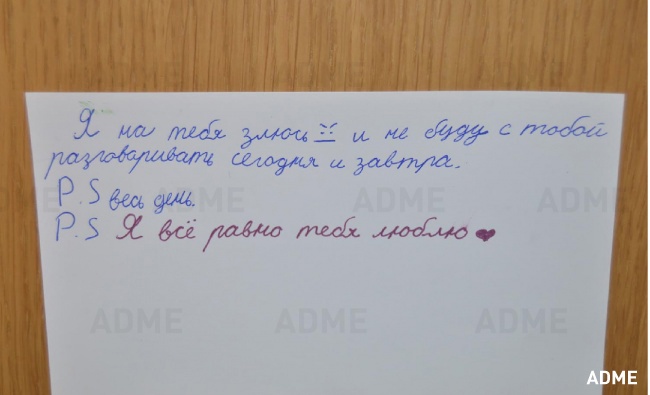 Я на тебя злюсь и не буду с тобой
разговаривать сегодня и завтра.
P.S весь день.
P.S Я всё равно тебя люблю ❤
ADME ADME ADME
ADME ADME ADME
ADME